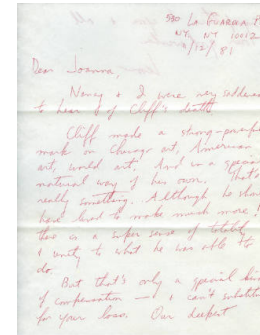 580 La Guardia P
NY NY 10012
/12/81
Dear Joanna,
Nancy & I were very saddened
to hear of Cliff's death
Cliff made a strong-powerful
mark on Chicago art, American
art, world art. And in a special
natural way of his own. That's
really something. Although he should
have lived to make much more!
there is a super sense of totality
& unity to what he was able to
do.
But that's only a special kind
of compensation — I can't substitute
for your loss. Our deepest